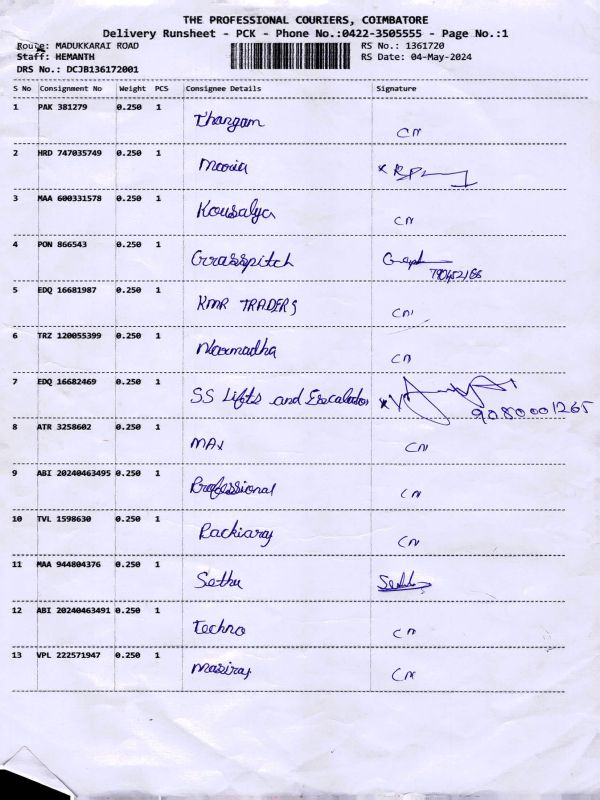 THE PROFESSIONAL COURIERS, COIMBATORE
Delivery Runsheet - PCK - Phone No.:0422-3505555 - Page No.:1
Route: MADUKKARAI ROAD RS No.: 1361720
Staff: HEMANTH RS Date: 04-May-2024
DRS No.: DCJB136172001
S No Consignment No Weight PCS Consignee Details Signature
1 PAK 381279 0.250 1 Thangam CN
2 HRD 747035749 0.250 1
3 MAA 600331578 0.250 1 Kousalya CN
4 PON 866543 0.250 1 Grasspitch
5 EDQ 16681987 0.250 1 KMR TRADERS CN
6 TRZ 120055399 0.250 1 Narmadha CN
7 EDQ 16682469 0.250 1 SS Lifts and Esecalator 9080001265
8 ATR 3258602 0.250 1 MAX CN
9 ABI 20240463495 0.250 1 Professional CN
10 TVL 1598630 0.250 1 Rackiaraj CN
11 MAA 944804376 0.250 1 Sethu
12 ABI 20240463491 0.250 1 Techno CN
13 VPL 222571947 0.250 1 CN